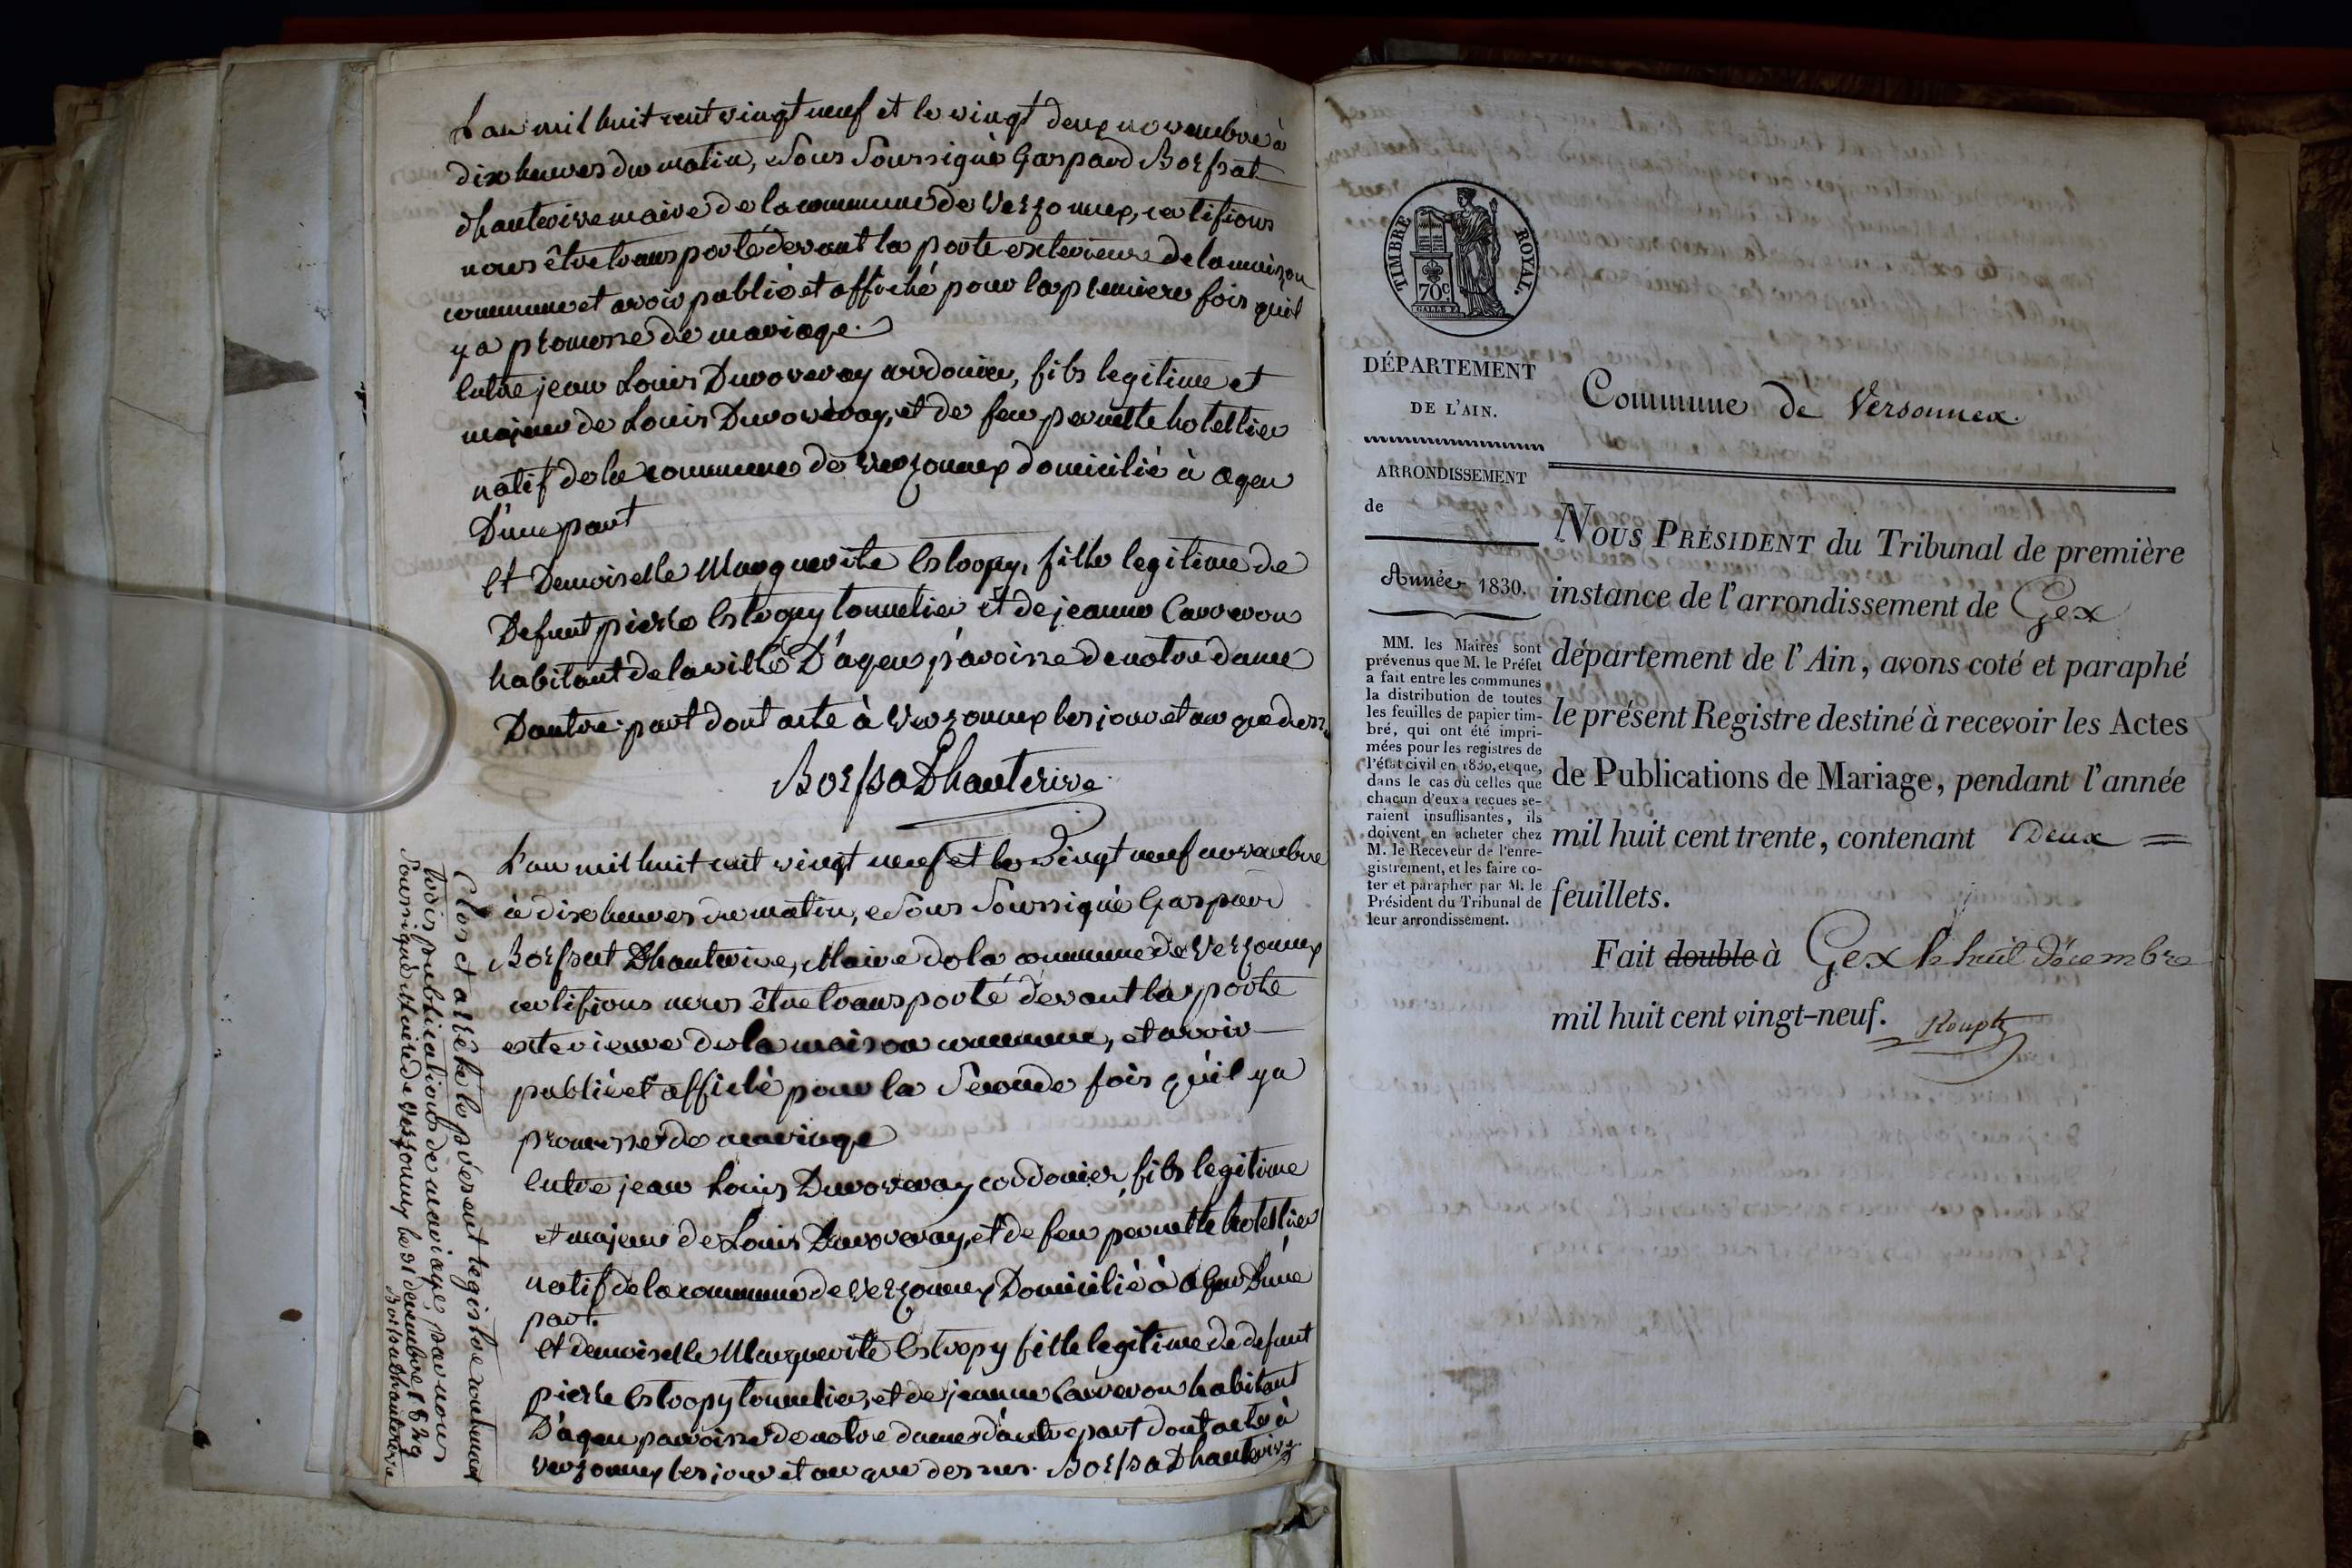 L'an mil huit cent vingt neuf et le vingt deux novembre à
dix heures du matin, Nous Soussigné Gaspard Borssat
dhauterive maire de la commune de Verzonnex, certifions
nous être transporté devant la porte exterieure de la maison
commune et avoir publié et affiché pour la premiere fois quil
y a promesse de mariage.
Entre jean Louis Duvoveray cordonier, fils legitime et
majeur de Louis Duvoveray, et de feu pernette hotellier
natif de la commune de Verzonnex domicilié à agen
D'une part
Et Demoiselle Marguerite Estoopy, fille legitime de
Defunt pierre Estoopy tonnelier et de jeanne Carreron
habitant de la ville D'agen paroisse de notre dame
Dautre part dont acte à Verzonnex les jour et an que dessus
Borssa Dhauterive
L'an mil huit cent vingt neuf et le Vingt neuf novembre
à dix heures du matin, Nous Soussigné Gaspard
Borssat Dhauterive, Maire de la commune de Verzonnex
certifions nous être transporté devant la porte
exterieure de la maison commune, et avoir
publié et affiché pour la Seconde fois qu'il y a
promesse de mariage
Entre jean Louis Duvoveray cordonier, fils legitime
et majeur de Louis Duvoveray, et de feu pernette hotellier
natif de la commune de Verzonnex Domicilié à Agen D'une
part.
Et demoiselle Marguerite Estoopy fille legitime de defunt
pierre Estoopy tonnelier, et de jeanne Carreron habitant
D'agen paroisse de notre dame d'autre part dont acte à
Verzonnex les jour et an que dessus. Borssa Dhauterive
Clos et arrêté le présent registre contenant
trois publications de mariage, par nous
Soussigné Maire de Verzonnex le 31 decembre 1829
Borssa Dhauterive
TIMBRE ROYAL.
70c
DÉPARTEMENT
DE L'AIN.
ARRONDISSEMENT
de
Année 1830.
MM. les Maires sont
prévenus que M. le Préfet
a fait entre les communes
la distribution de toutes
les feuilles de papier tim-
bré, qui ont été impri-
mées pour les registres de
l'état civil en 1830, et que,
dans le cas où celles que
chacun d'eux a reçues se-
raient insuffisantes, ils
doivent en acheter chez
M. le Receveur de l'enre-
gistrement, et les faire co-
ter et parapher par M. le
Président du Tribunal de
leur arrondissement.
Commune de Versonnex
NOUS PRÉSIDENT du Tribunal de première
instance de l'arrondissement de Gex
département de l'Ain, avons coté et paraphé
le présent Registre destiné à recevoir les Actes
de Publications de Mariage, pendant l'année
mil huit cent trente, contenant Deux
feuillets.
Fait double à Gex le huit décembre
mil huit cent vingt-neuf.